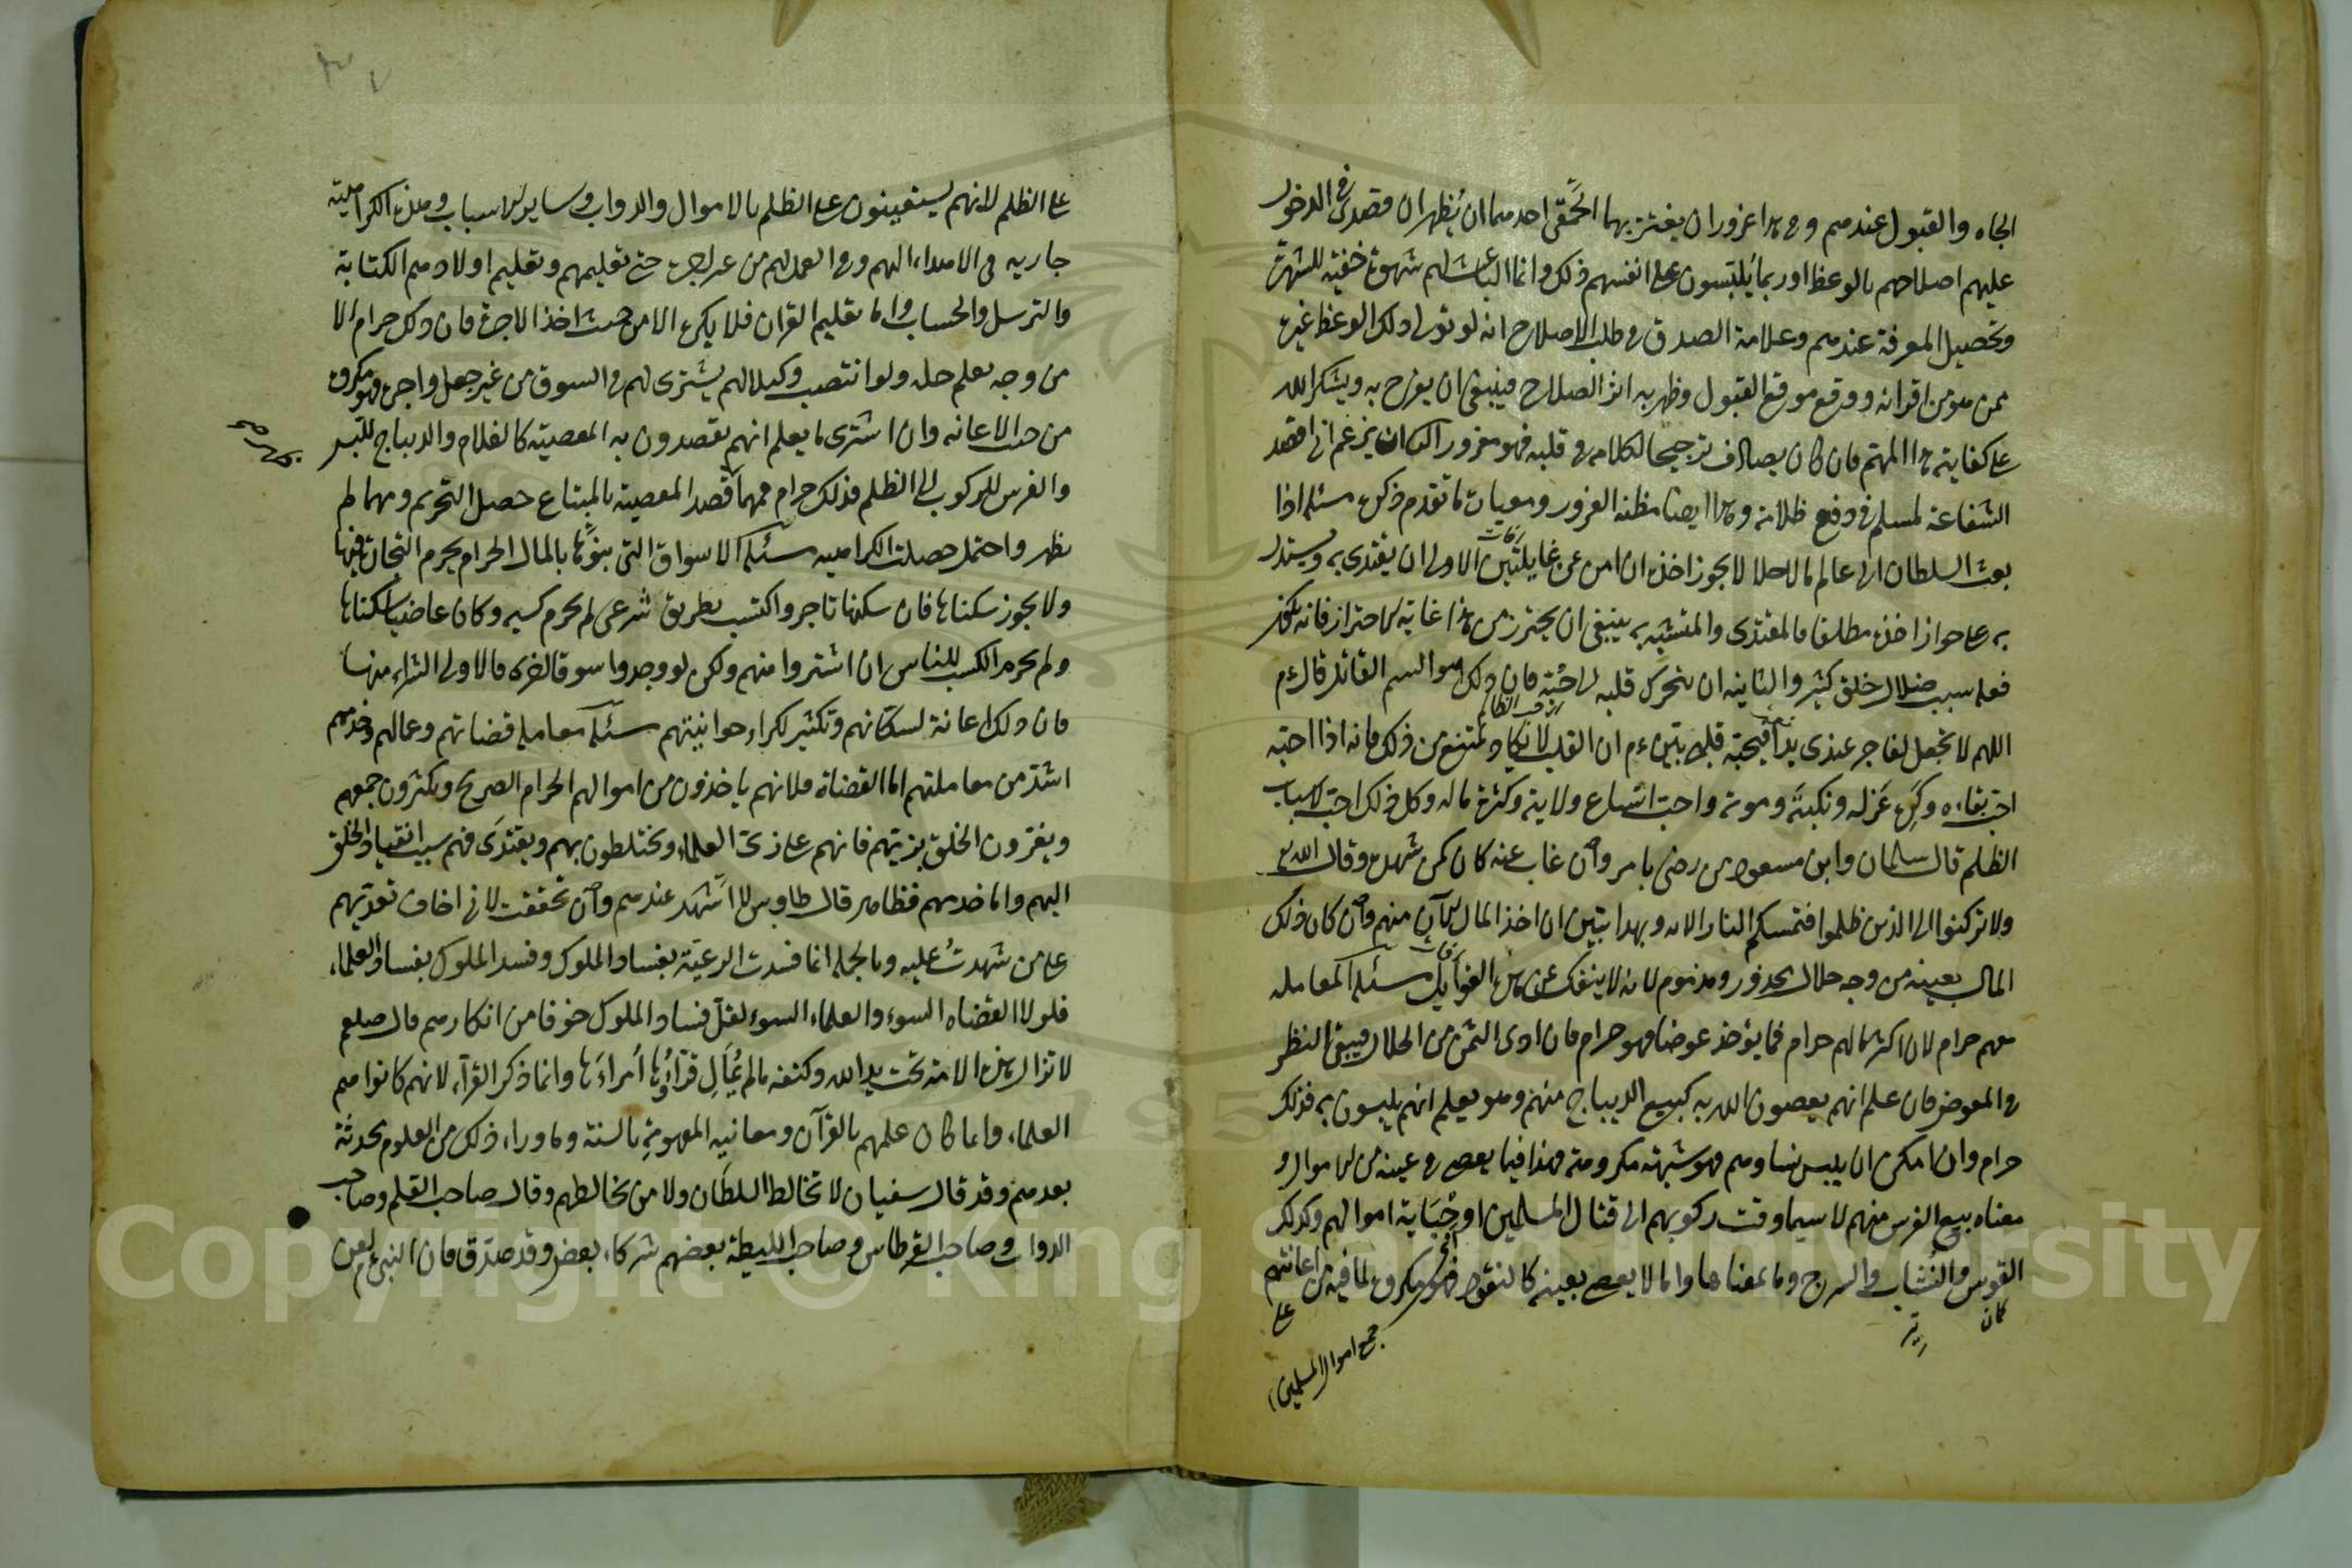 الجاه والقبول عندهم وفي هذا غروران يغتر بهما الحمقى احدهما ان يُظهر ان قصدي في الدخول
عليهم اصلاحهم بالوعظ وربما يُلبّسون على انفسهم ذلك وانما الباعث لهم شهوة خفية للشهرة
وتحصيل المعرفة عندهم وعلامة الصدق في طلب الاصلاح انه لو تولى ذلك الوعظ غيره
ممن هو من اقرانه ووقع موقع القبول وظهر به اثر الصلاح فينبغى ان يفرح به ويشكر الله
على كفايته هذا المهم فان كان يصادف ترجيحا لكلامه في قلبه فهو مغرور الثاني ان يزعم اني اقصد
الشفاعة لمسلم في دفع ظلامة وهذا ايضا مظنة الغرور ومعياره ما تقدم ذكره مسئلة اذا
بعث السلطان الى عالم مالا حلالا يجوز اخذه ان امن من غايلتين الاولى ان يقتدى به ويستدل
به على جواز اخذه مطلقا فالمقتدى والمتشبه به ينبغى ان يحترز من هذا غاية الاحتراز فانه يكون
فعله سبب ضلال خلق كثير والثانيه ان يتحرك قلبه الى حبّه فان ذلك هو السم القاتل قال ءم
اللهم لا تجعل لفاجر عندى يدا فيحبه قلبي بيّن ءم ان القلب لا يكاد يمتنع من ذلك فانه اذا احبّه
احبّ بقاءه وكره عزله ونكبته وموته واحبّ اتساع ولايته وكثرة ماله وكل ذلك احبّ لاسباب
الظلم قال سلمان وابن مسعود من رضي بامر وان غاب عنه كان كمن شهده وقال الله تع
ولا تركنوا الى الذين ظلموا فتمسكم النار الايه وبهذا يتبين ان اخذ المال الآن منهم وان كان ذلك
المال بعينه من وجه حلال محذور ومذموم لانه لا ينفك عن هذه الغوايل مسئلة المعامله
معهم حرام لان اكثر مالهم حرام فما يؤخذ عوضا فهو حرام فان ادى الثمن من الحلال فيبقى النظر
في المعوض فان علم انهم يعصون الله به كبيع الديباج منهم وهو يعلم انهم يلبسون به فذلك
حرام وان امكن ان يلبس نساءهم فهو شبهة مكروهة وهذا فيما يعصى في عينه من الاموال و
معناه بيع الفرس منهم لا سيما وقت ركوبهم الى قتال المسلمين او جباية اموالهم وكذلك
القوس والنُشّاب والسرج وما بمعناها واما ما لا يعصى بعينه كالنقود فهو مكروه لما فيه من اعانتهم
على
كمان
تير
جمع اموال المسلمين
على الظلم لانهم يستعينون على الظلم بالاموال والدواب وساير الاسباب وهذه الكراهية
جاريه في الاهداء اليهم وفي العمل لهم من غير اجرة حتى تعليمهم وتعليم اولادهم الكتابة
والترسل والحساب واما تعليم القران فلا يكره الا من حيث اخذ الاجرة فان ذلك حرام الا
من وجه يعلم حله ولو انتصب وكيلا لهم يشترى لهم في السوق من غير جعل واجرة فهو مكروه
من حيث الاعانه وان اشترى ما يعلم انهم يقصدون به المعصية كالغلام والديباج للّبس
والفرس للركوب الى الظلم فذلك حرام فمهما قصد المعصية بالمبتاع حصل التحريم ومهما لم
يظهر واحتمل حصلت الكراهيه مسئلة الاسواق التى بنوها بالمال الحرام يحرم التجارة فيها
ولا يجوز سكناها فان سكنها تاجر واكتسب بطريق شرعى لم يحرم كسبه وكان عاصيا بسكناها
ولم يحرم الكسب للناس ان اشتروا منهم ولكن لو وجدوا سوقا اخرى فالاولى الشراء منها
فان ذلك اعانة لسكانهم وتكثير لكراء حوانيتهم مسئلة معاملة قضاتهم وعمالهم وخدمهم
اشد من معاملتهم اما القضاة فلانهم ياخذون من اموالهم الحرام الصريح ويكثرون جمعهم
ويغرّون الخلق بزيّهم فانهم على زىّ العلماء ويختلطون بهم ويقتدى فهم سبب انقياد الخلق
اليهم واما خدمهم فظاهر قال طاوس لا اشهد عندهم وان تحققت لاني اخاف تعديهم
على من شهدت عليه وبالجملة انما فسدت الرعية بفساد الملوك وفسد الملوك بفساد العلماء
فلولا القضاه السوء والعلماء السوء لقلّ فساد الملوك خوفا من انكارهم قال صلعم
لا تزال هذه الامة تحت يد الله وكنفه ما لم يُمالِ قراؤها امراءها وانما ذكر القرآء لانهم كانوا هم
العلماء وانما كان علمهم بالقرآن ومعانيه المفهومة بالسنة وما وراء ذلك من العلوم محدثة
بعدهم وقد قال سفيان لا تخالط السلطان ولا من يخالطهم وقال صاحب القلم وصاحب
الدواة وصاحب القرطاس وصاحب الليطة بعضهم شركاء بعض وقد صدق فان النبي ءم لعن